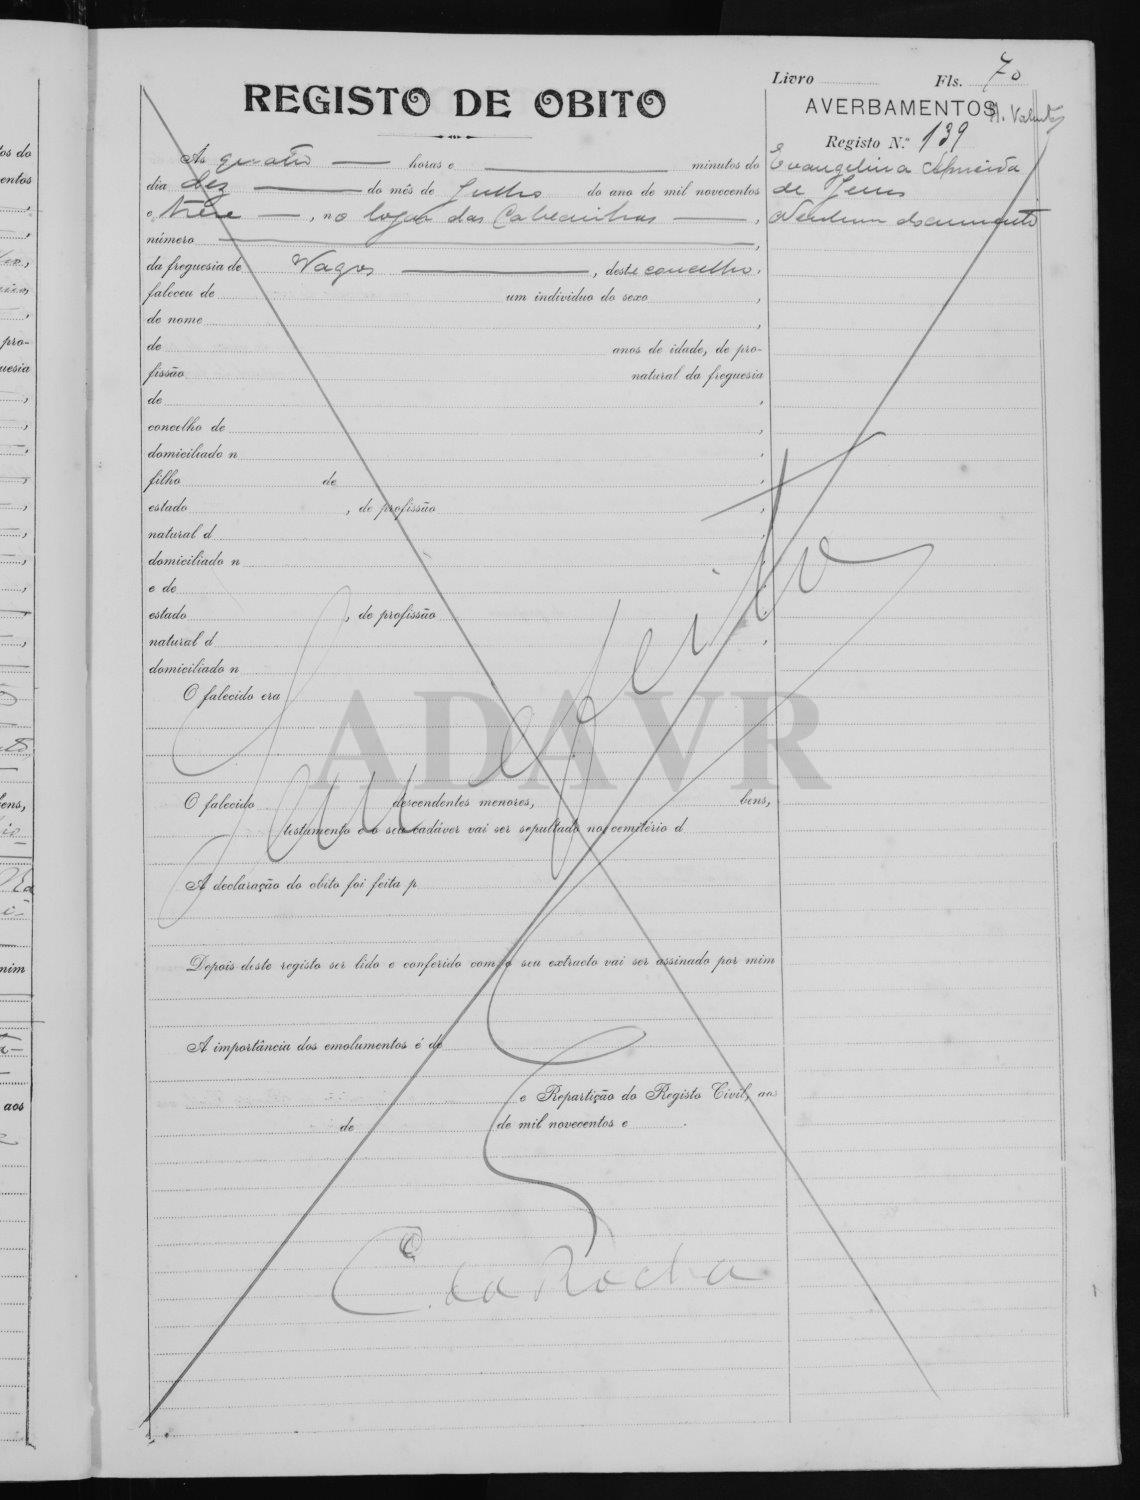 Livro Fls. 70
REGISTO DE OBITO
AVERBAMENTOS
Registo N.º 139
Evangelina Aparecida
de Jesus
Nenhum documento
Ás quatro horas e minutos do
dia dez do mês de Julho do ano de mil novecentos
e treze, no logar das Cabecinhas,
número,
da freguesia de Vagos, deste concelho,
faleceu de um individuo do sexo,
de nome,
de anos de idade, de pro-
fissão natural da freguesia
de,
concelho de,
domiciliado n,
filho de,
estado, de profissão,
natural d,
domiciliado n,
e de,
estado, de profissão,
natural d,
domiciliado n
O falecido era
Sem efeito
ADAVR
O falecido descendentes menores, bens,
testamento e o seu cadáver vai ser sepultado no cemitério d
A declaração do obito foi feita p
Depois deste registo ser lido e conferido com o seu extracto vai ser assinado por mim
A importância dos emolumentos é de
e Repartição do Registo Civil, aos
de de mil novecentos e.
C. da Rocha